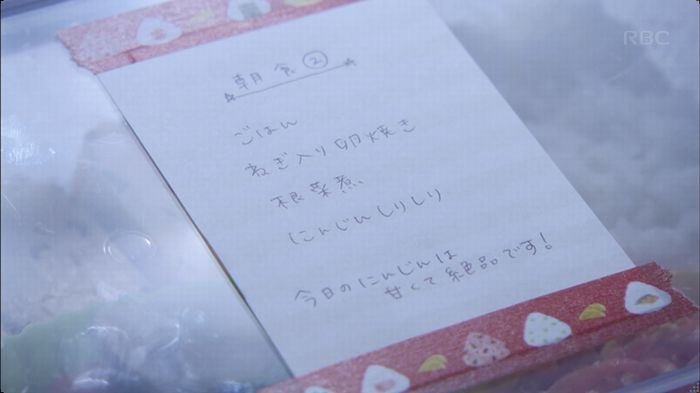 RBC
朝食②
ごはん
ねぎ入り卵焼き
根菜煮
にんじんしりしり
今日のにんじんは
甘くて絶品です!